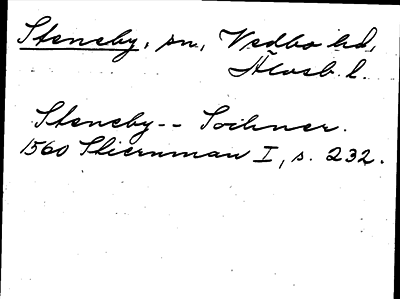 Steneby, sn, Vedbo hd,
Älvsb. l.
Steneby -- Soihner.
1560 Stiernman I, s. 232.